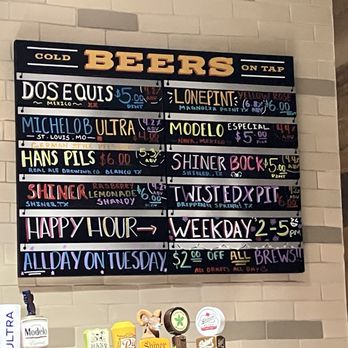 COLD BEERS ON TAP
DOS EQUIS $5.00 PINT
MEXICO
LONEPINT YELLOW ROSE $6.00
MAGNOLIA
MICHELOB ULTRA
ST. LOUIS, MO
MODELO ESPECIAL $5.00
MEXICO
GERMAN STYLE
HANS PILS $6.00
REAL ALE BREWING CO. BLANCO TX
SHINER BOCK $5.00
SHINER, TX
SHINER RASPBERRY LEMONADE SHANDY
SHINER TX
TWISTED X PIT
DRIPPING SPRINGS TX
HAPPY HOUR→
WEEKDAY 2-5 PM
ALL DAY ON TUESDAY
$2.00 OFF ALL BREWS!!
ALL DRAFTS ALL DAY
ULTRA
Modelo
Shiner